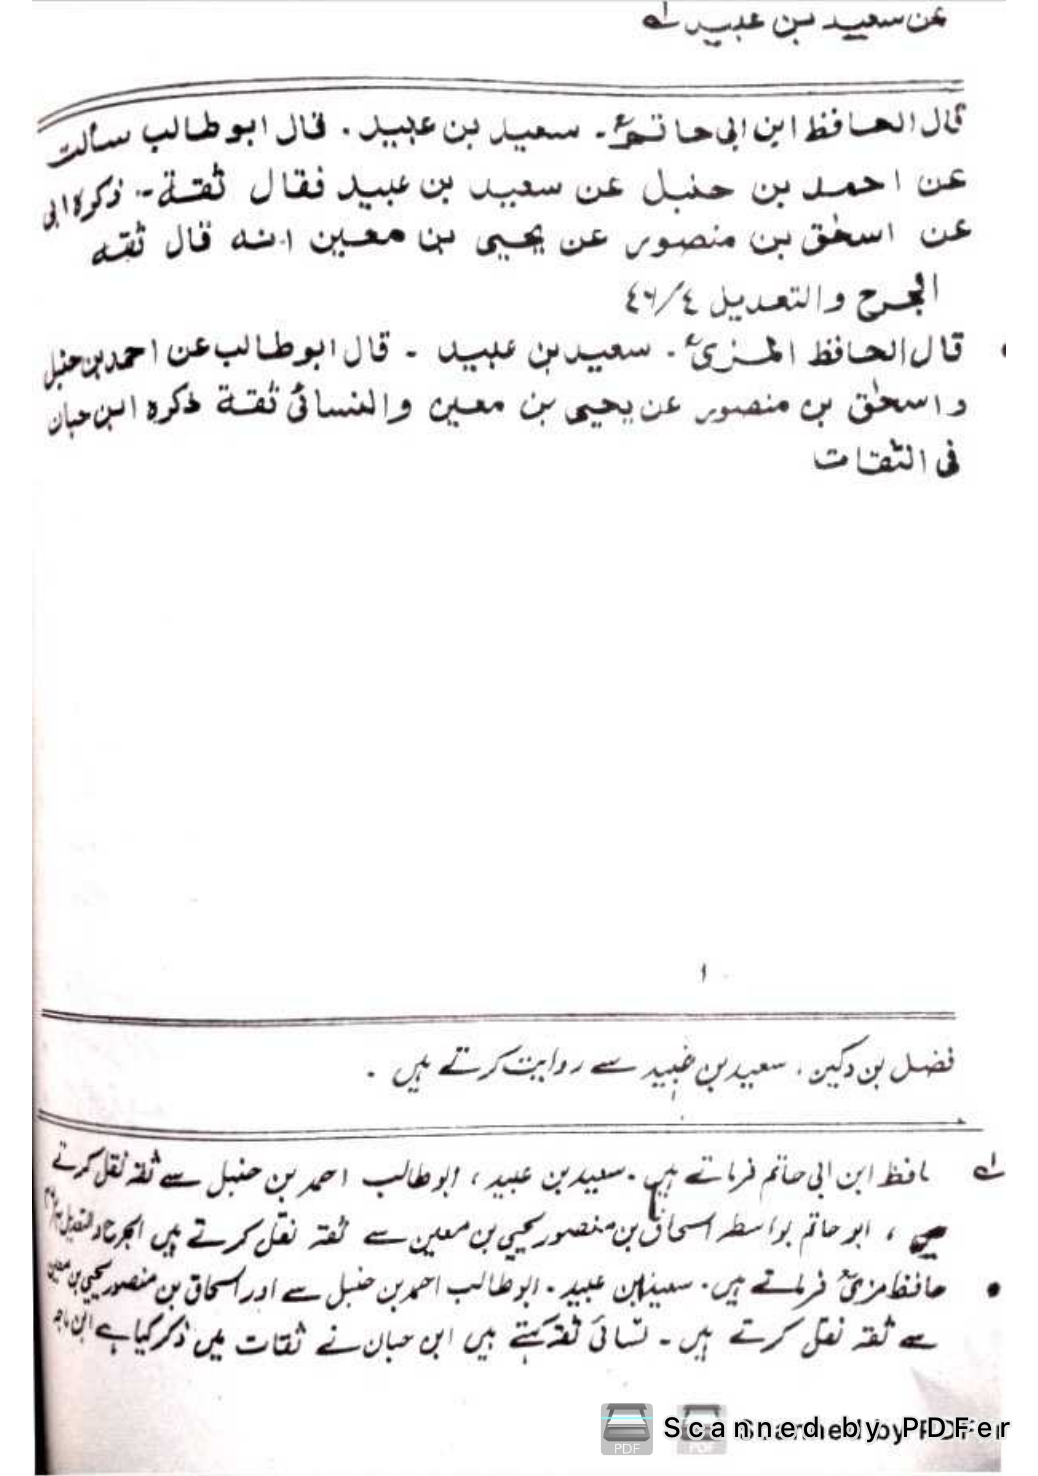 عن سعيد بن عبيد لے
قال الحافظ ابن ابی حاتمؒ۔ سعيد بن عبيد۔ قال ابو طالب سألت
عن احمد بن حنبل عن سعيد بن عبيد فقال ثقة۔ ذكره ابی
عن اسحٰق بن منصور عن يحيی بن معين انه قال ثقه
الجرح والتعديل ٤/٤٦
قال الحافظ المزیؒ۔ سعيد بن عبيد ۔ قال ابو طالب عن احمد بن حنبل
و اسحٰق بن منصور عن يحيی بن معين والنسائی ثقة ذكره ابن حبان
فی الثقات
١
فضل بن دکین، سعید بن عبید سے روایت کرتے ہیں ۔
لے افظ ابن ابی حاتم فرماتے ہیں۔ سعید بن عبید، ابوطالب احمد بن حنبل سے ثقہ نقل کرتے
، ابو حاتم بواسطہ اسحاق بن منصور یحییٰ بن معین سے ثقہ نقل کرتے ہیں الجرح والتعدیل
• حافظ مزیؒ فرماتے ہیں۔ سعید ابن عبید۔ ابوطالب احمد بن حنبل سے اور اسحاق بن منصور یحییٰ بن معین
سے ثقہ نقل کرتے ہیں۔ نسائی ثقہ کہتے ہیں ابن حبان نے ثقات میں ذکر کیا ہے ابن ماجہ
Scanned by PDFer
Scanned by PDFer